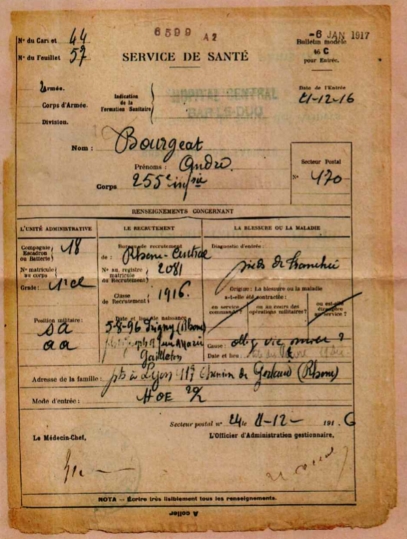 6599 A2
-6 JAN 1917
N° du Carnet 44
N° du Feuillet 57
Bulletin modèle
46 C
pour Entrée.
SERVICE DE SANTÉ
Armée.
Corps d'Armée.
Division.
Indication
de la
Formation Sanitaire
HOPITAL CENTRAL
BAR-LE-DUC
Date de l'Entrée
21-12-16
Nom : Bourgeat
Prénoms : André
Corps 255e infie
Secteur Postal
N° 170
RENSEIGNEMENTS CONCERNANT
L'UNITÉ ADMINISTRATIVE
LE RECRUTEMENT
LA BLESSURE OU LA MALADIE
Compagnie
Escadron
ou Batterie 18
N° matricule
au corps
Grade : 2e cl
Position militaire :
SA
aa
Bureau de recrutement
de : Rhône-Central
N° au registre
matricule
de Recrutement 2081
Classe
de Recrutement 1916.
Date et lieu de naissance
5-8-96 Irigny (Rhône)
Diagnostic d'entrée :
pieds de tranchée
Origine : La blessure ou la maladie
a-t-elle été contractée :
en service
commandé ?
ou au cours des
opérations militaires ?
ou en dehors
du service ?
Cause
Date et lieu
Adresse de la famille : à Lyon 117 Chemin de (Rhône)
Mode d'entrée : HOE
Secteur postal n° 24 le 21-12- 1916
Le Médecin-Chef,
L'Officier d'Administration gestionnaire,
NOTA — Écrire très lisiblement tous les renseignements.
A coller